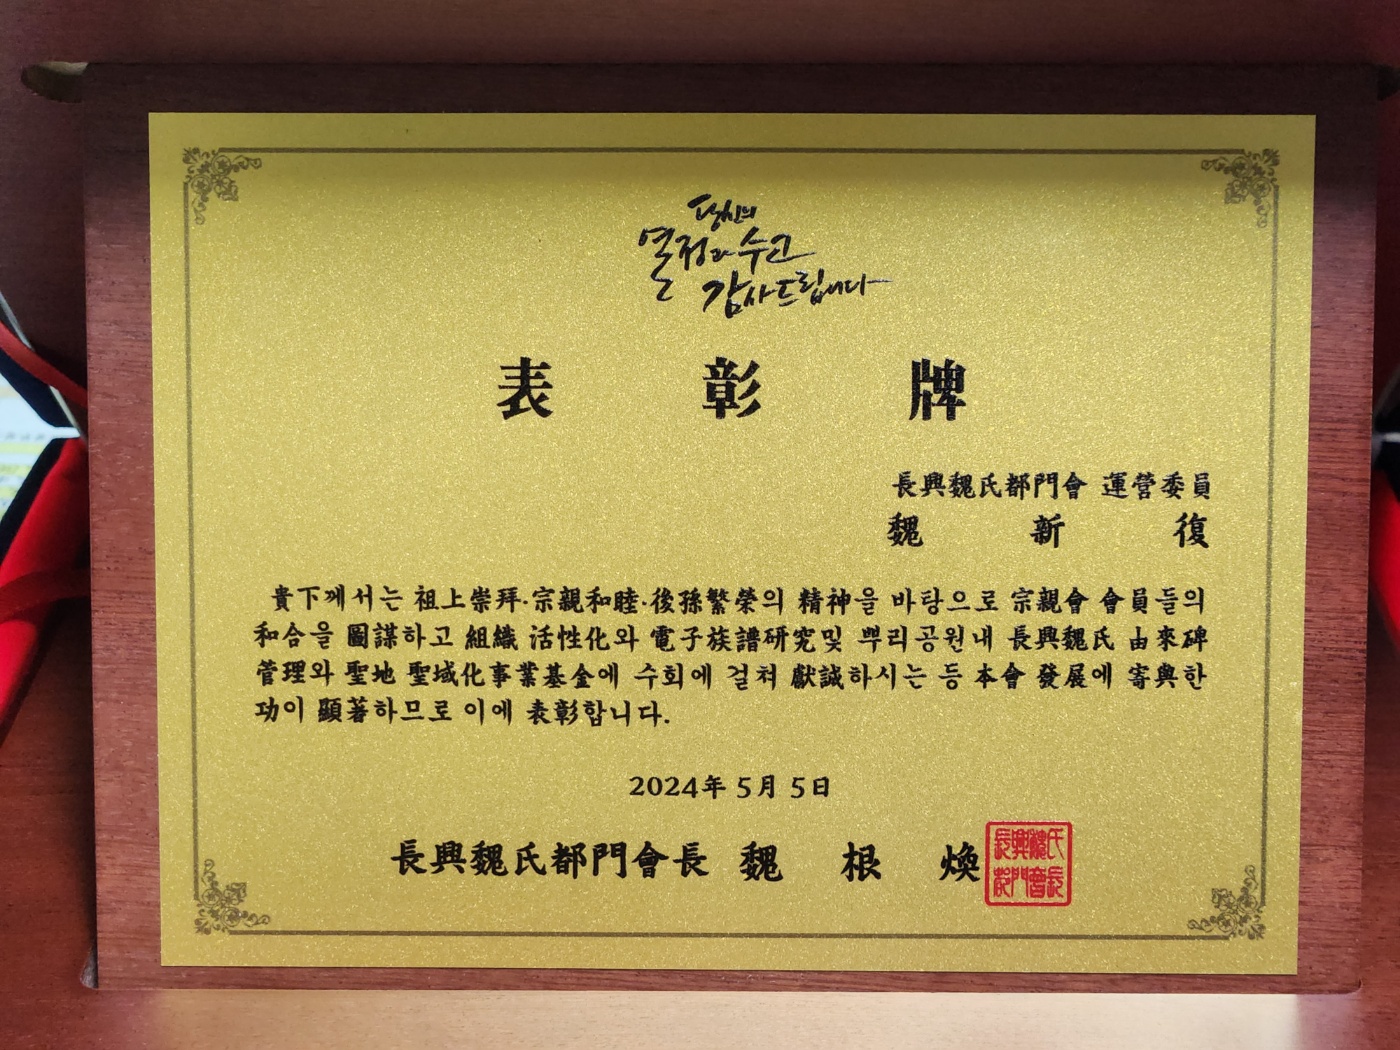 당신의
열정과 수고
감사드립니다
表 彰 牌
長興魏氏都門會 運營委員
魏 新 復
貴下께서는 祖上崇拜·宗親和睦·後孫繁榮의 精神을 바탕으로 宗親會 會員들의
和合을 圖謀하고 組織 活性化와 電子族譜硏究및 뿌리공원내 長興魏氏 由來碑
管理와 聖地 聖域化事業基金에 수회에 걸쳐 獻誠하시는 등 本會 發展에 寄與한
功이 顯著하므로 이에 表彰합니다.
2024年 5月 5日
長興魏氏都門會長 魏 根 煥
長興魏氏
都門會長